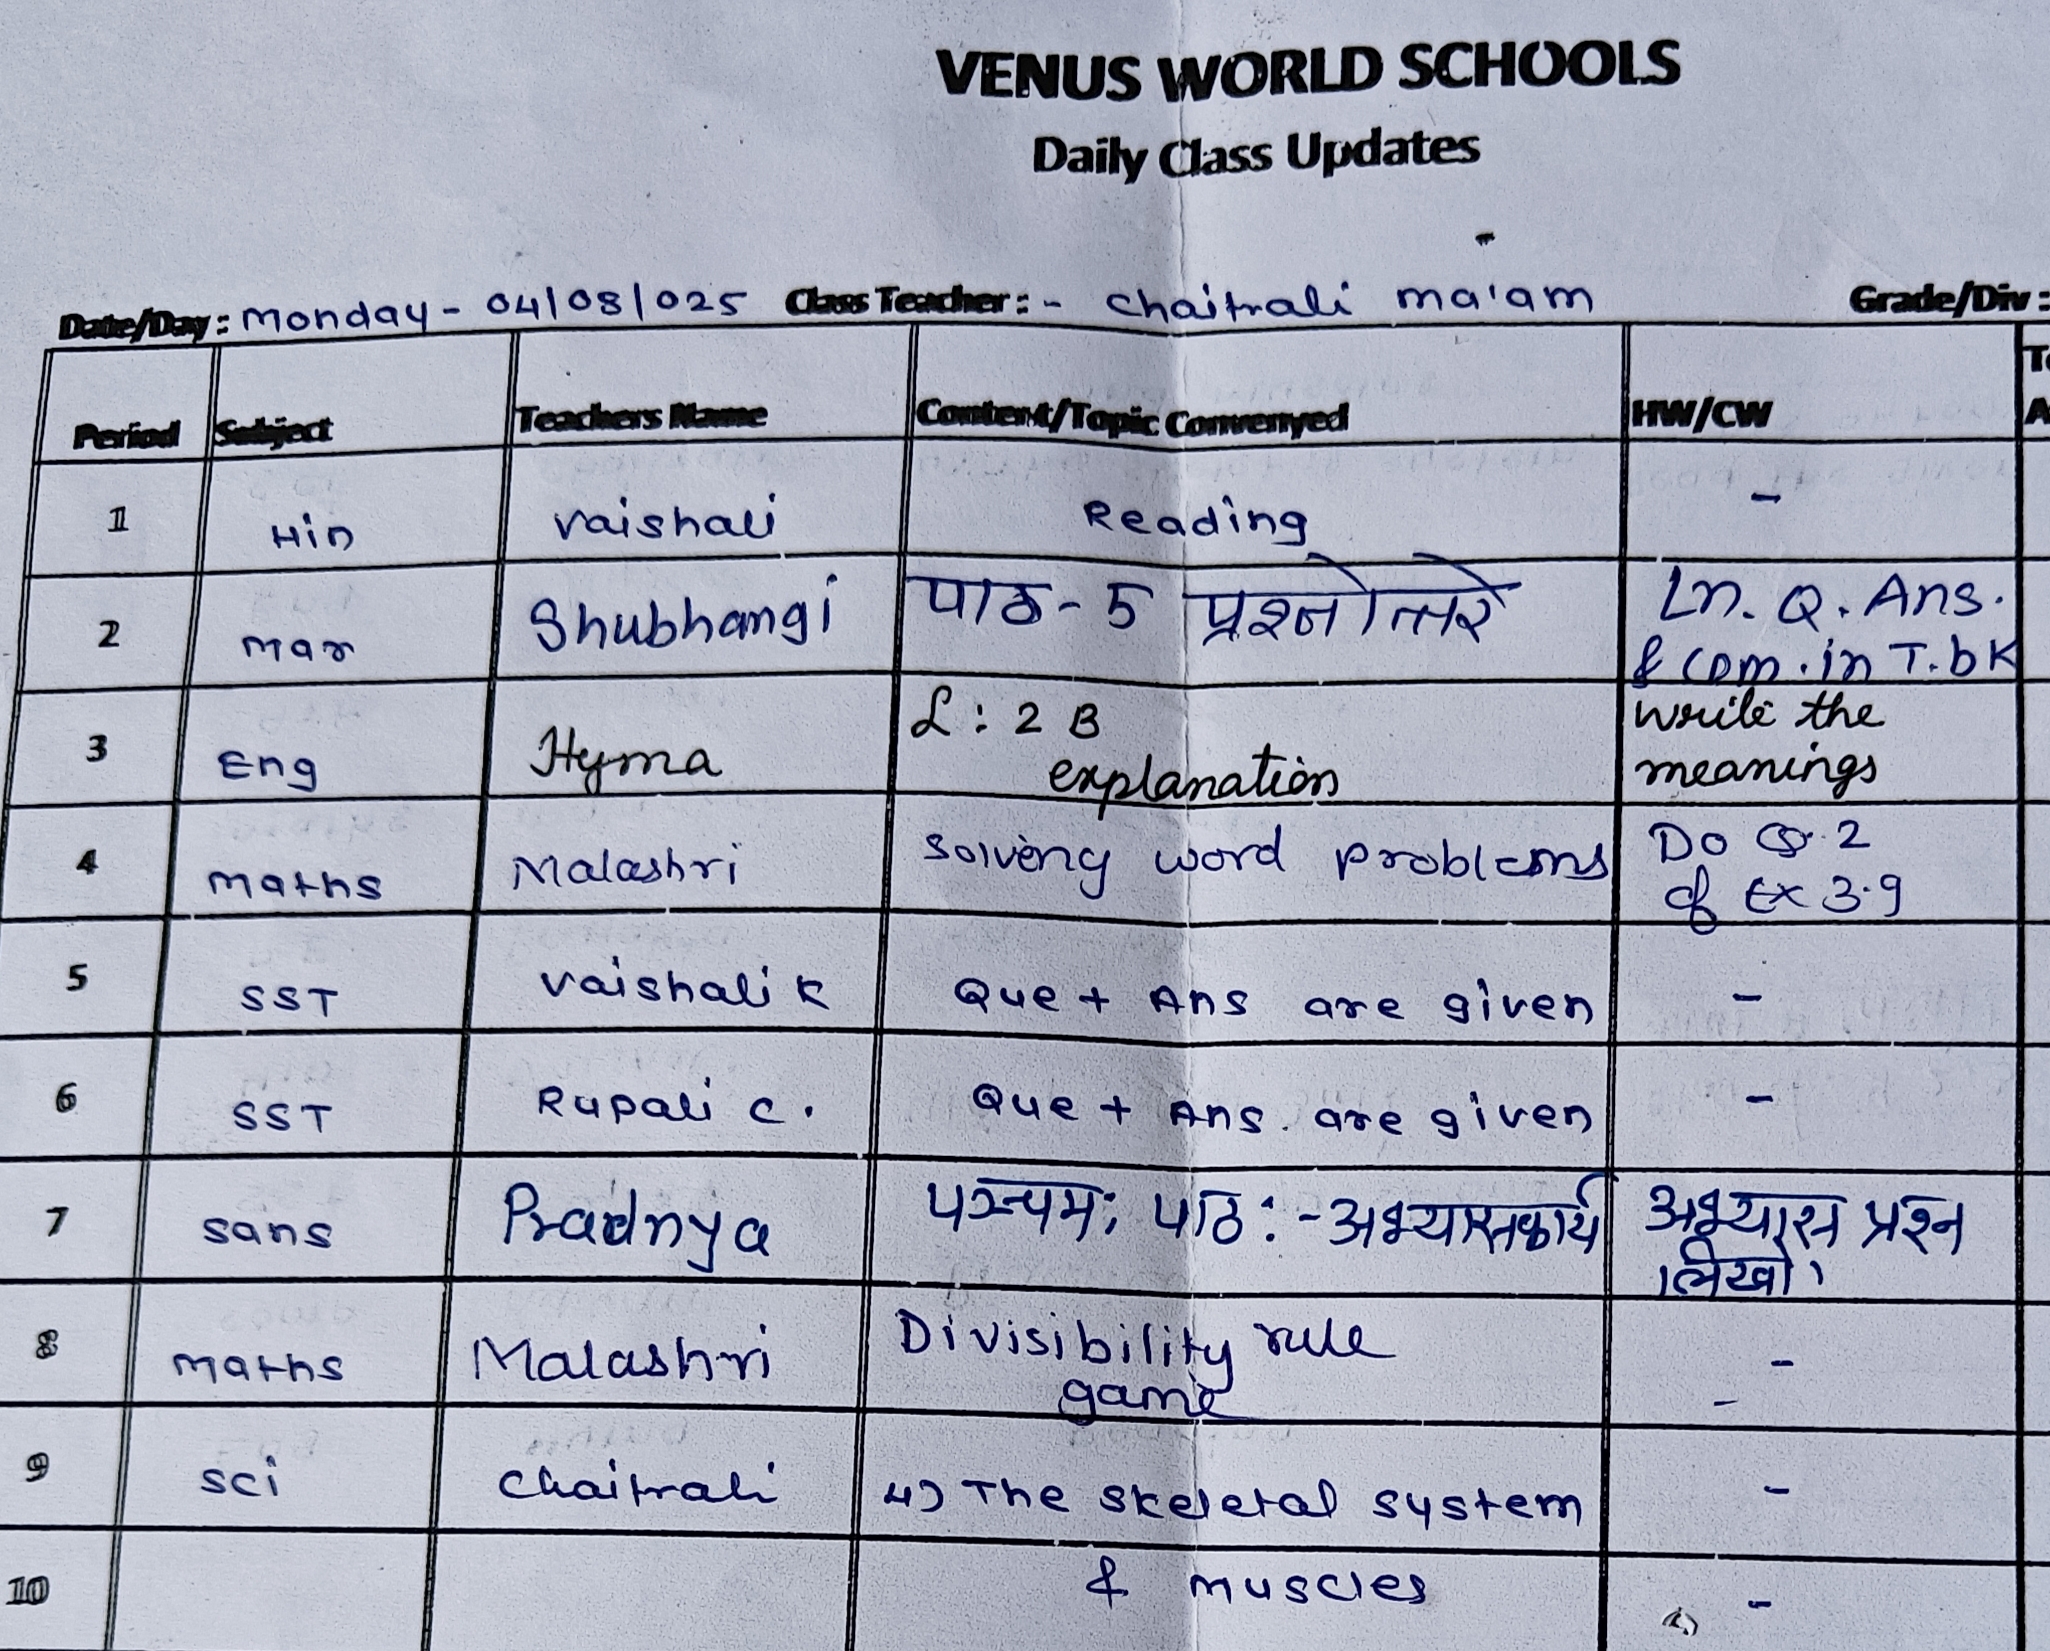 VENUS WORLD SCHOOLS
Daily Class Updates
Date/Day : Monday - 04/08/025 Class Teacher : - Chaitrali ma'am Grade/Div :
Period Subject Teachers Name Content/Topic Convenyed HW/CW
1 Hin Vaishali Reading -
2 Mar Shubhangi पाठ - 5 प्रश्नोत्तरे Ln. Q. Ans.
& com. in T. bk
3 Eng Hyma L : 2 B write the
explanation meanings
4 Maths Malashri Solving word problems Do Q. 2
of Ex 3.9
5 SST Vaishali K Que + Ans are given -
6 SST Rupali C. Que + Ans. are given -
7 Sans Pradnya पञ्चमः पाठः - अभ्यासकार्य अभ्यास प्रश्न
लिखो।
8 Maths Malashri Divisibility rule -
game -
9 Sci Chaitrali 4) The skeletal system -
10 & muscles -